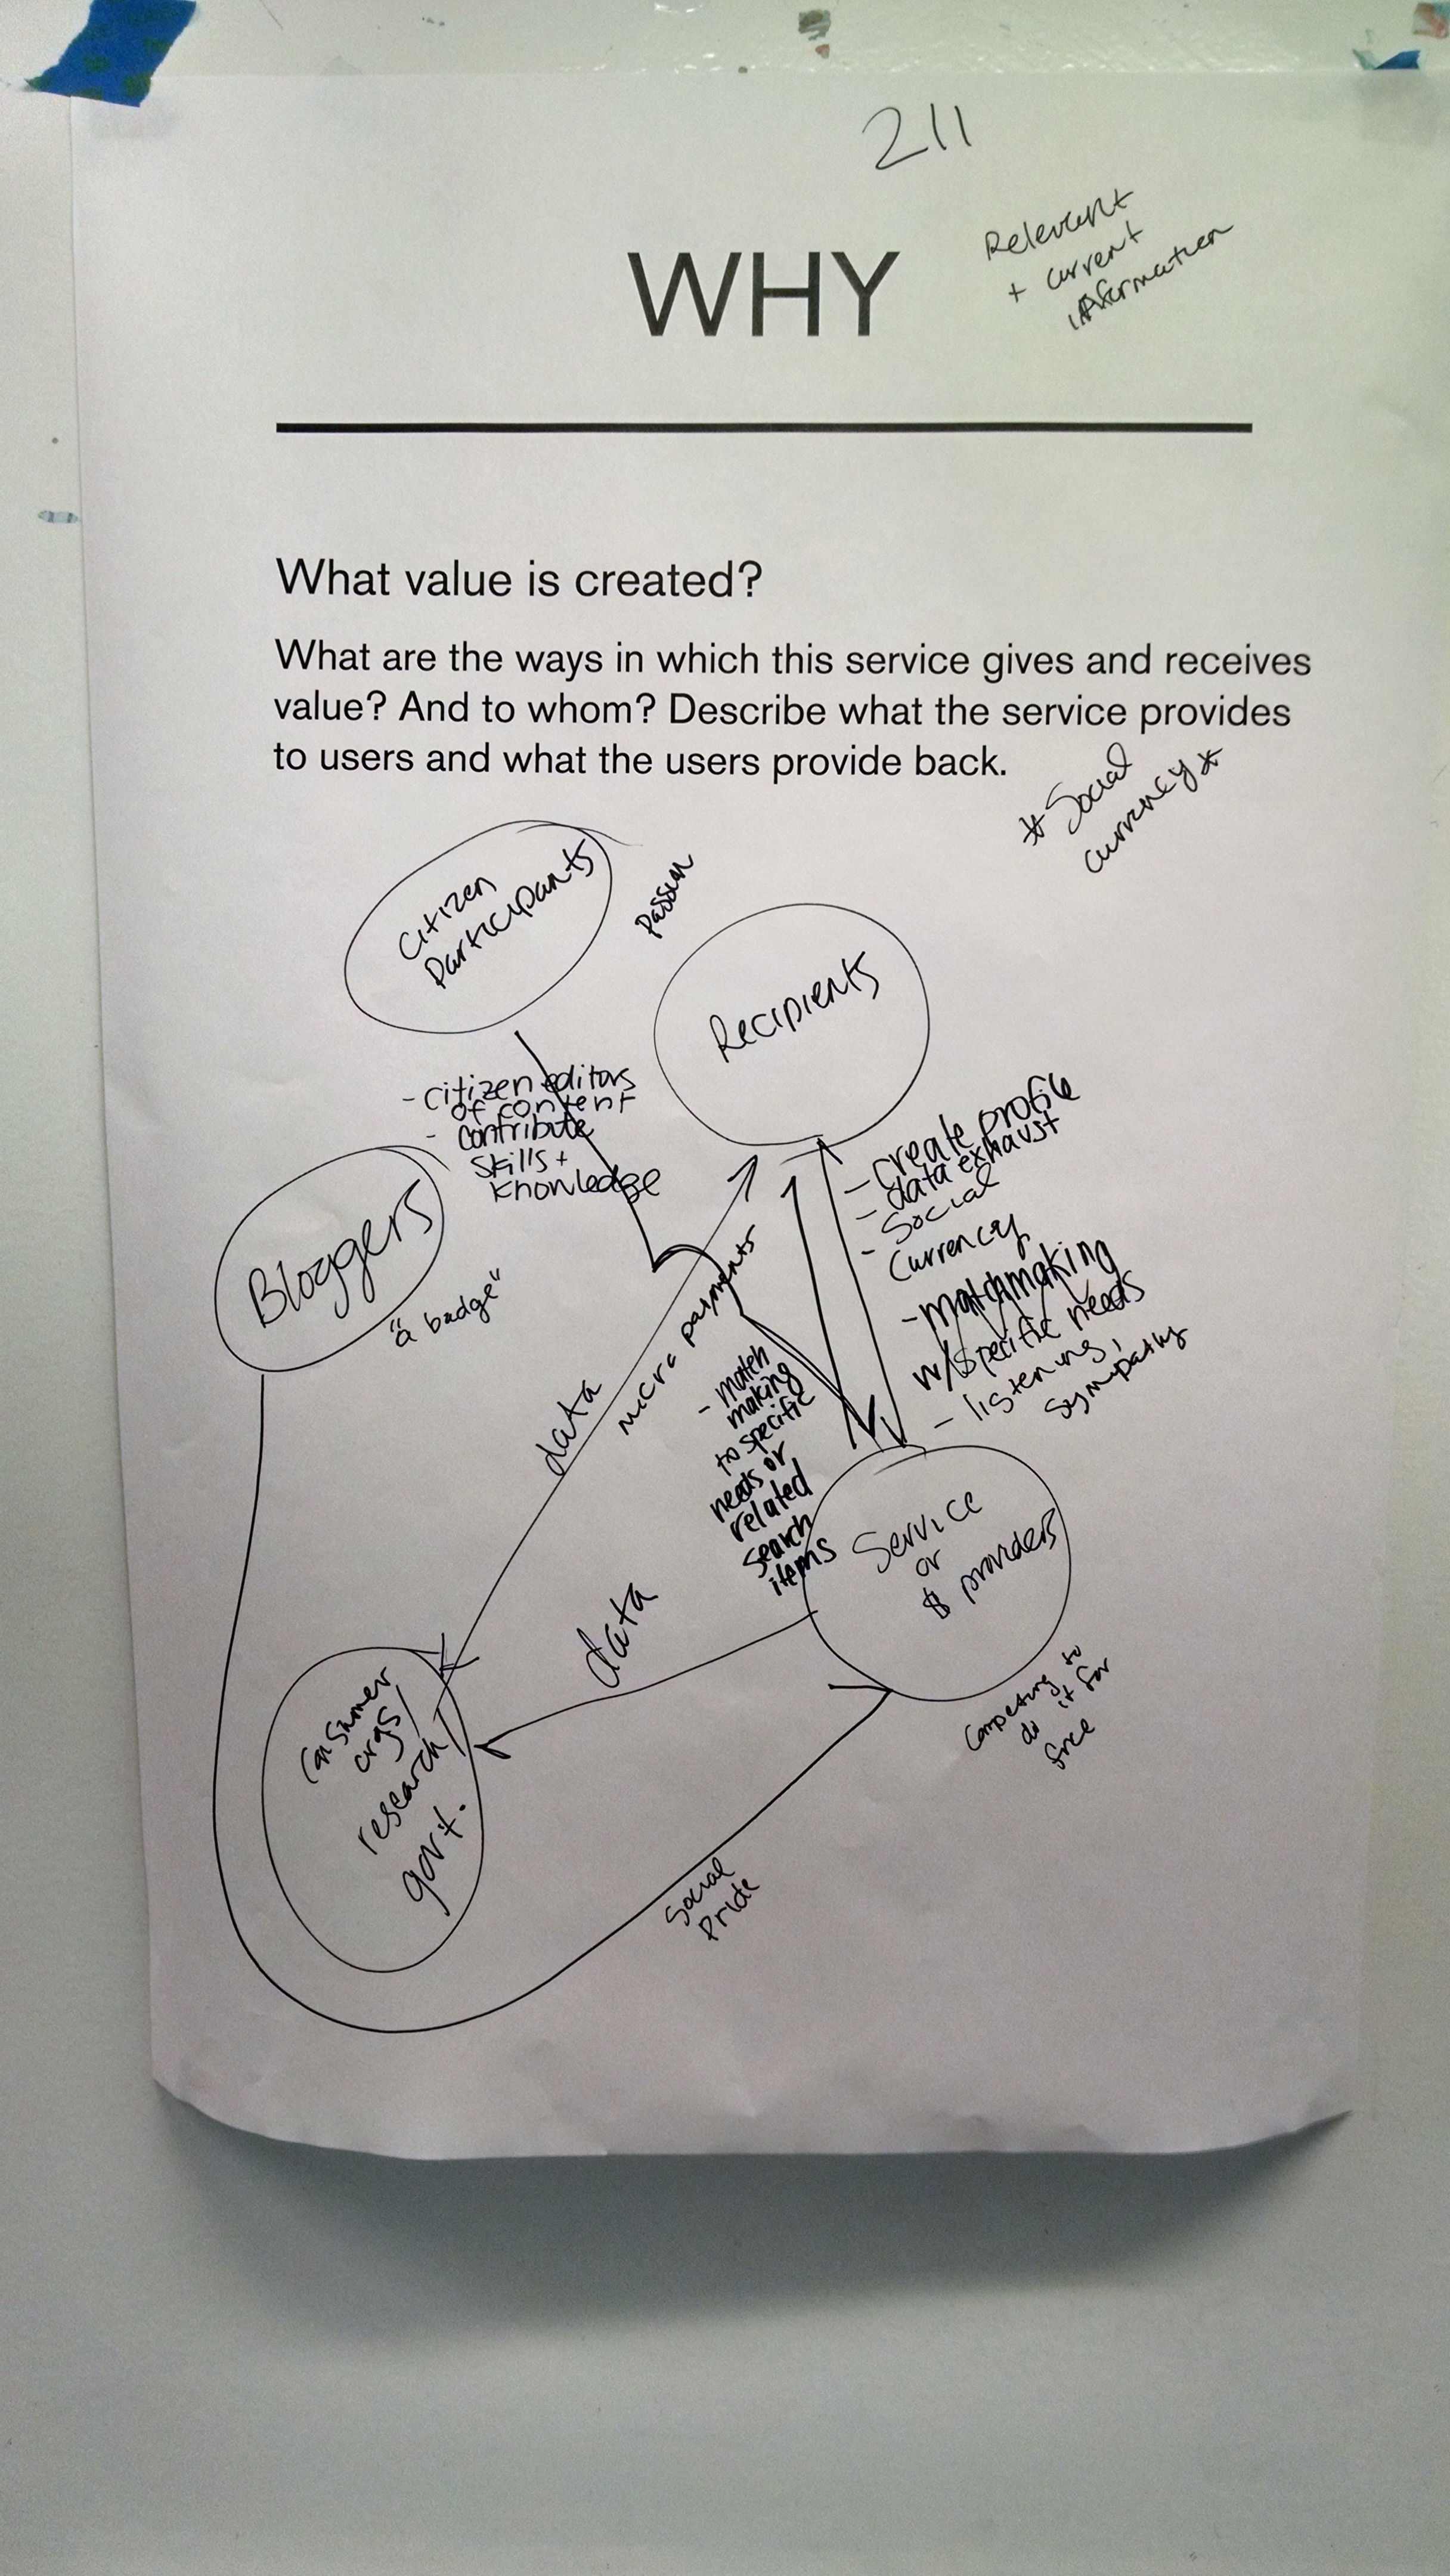 211
Relevant
+ current
information
WHY
What value is created?
What are the ways in which this service gives and receives
value? And to whom? Describe what the service provides
to users and what the users provide back.
* Social
currency *
Citizen
Participants
passion
Recipients
- citizen editors
of content
- contribute
skills +
knowledge
- create profile
- data exhaust
- Social
currency
- matchmaking
w/specific needs
- listening,
sympathy
Bloggers
"a badge"
data
micro payments
- match
making
to specific
needs or
related
search
items
Service
or
$ providers
data
Consumer
orgs/
research/
gov't.
competing to
do it for
free
Social
Pride